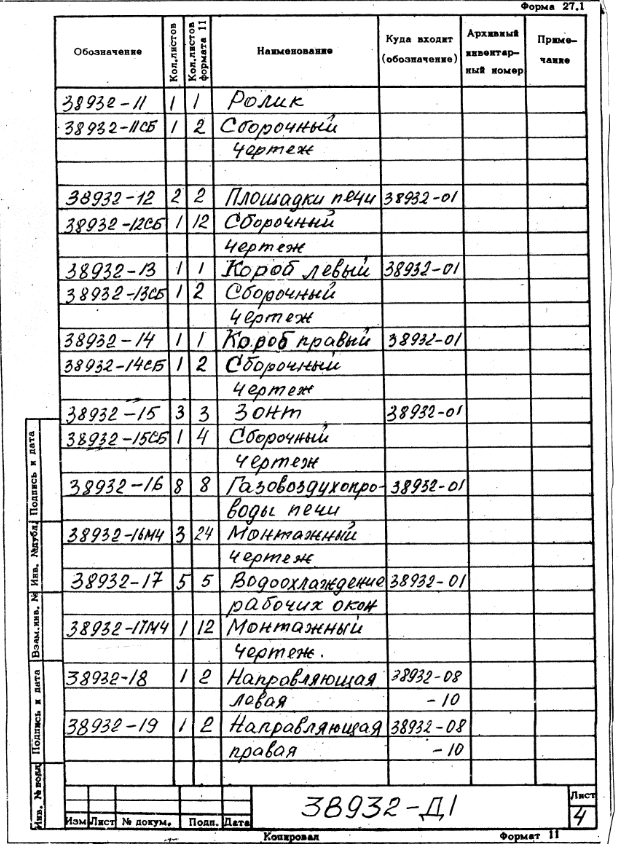 Форма 27.1
Обозначение Кол.листов Кол.листов формата 11 Наименование Куда входит (обозначение) Архивный инвентар-ный номер Приме-чание
38932-11 1 1 Ролик
38932-11СБ 1 2 Сборочный
чертеж
38932-12 2 2 Площадки печи 38932-01
38932-12СБ 1 12 Сборочный
чертеж
38932-13 1 1 Короб левый 38932-01
38932-13СБ 1 2 Сборочный
чертеж
38932-14 1 1 Короб правый 38932-01
38932-14СБ 1 2 Сборочный
чертеж
38932-15 3 3 Зонт 38932-01
38932-15СБ 1 4 Сборочный
чертеж
38932-16 8 8 Газовоздухопро- 38932-01
воды печи
38932-16МЧ 3 24 Монтажный
чертеж
38932-17 5 5 Водоохлаждение 38932-01
рабочих окон
38932-17МЧ 1 12 Монтажный
чертеж.
38932-18 1 2 Направляющая 38932-08
левая -10
38932-19 1 2 Направляющая 38932-08
правая -10
Инв. № подл. Подпись и дата Взам.инв. № Инв. №дубл. Подпись и дата
38932-Д1
Лист
4
Изм Лист № докум. Подп. Дата
Копировал Формат 11